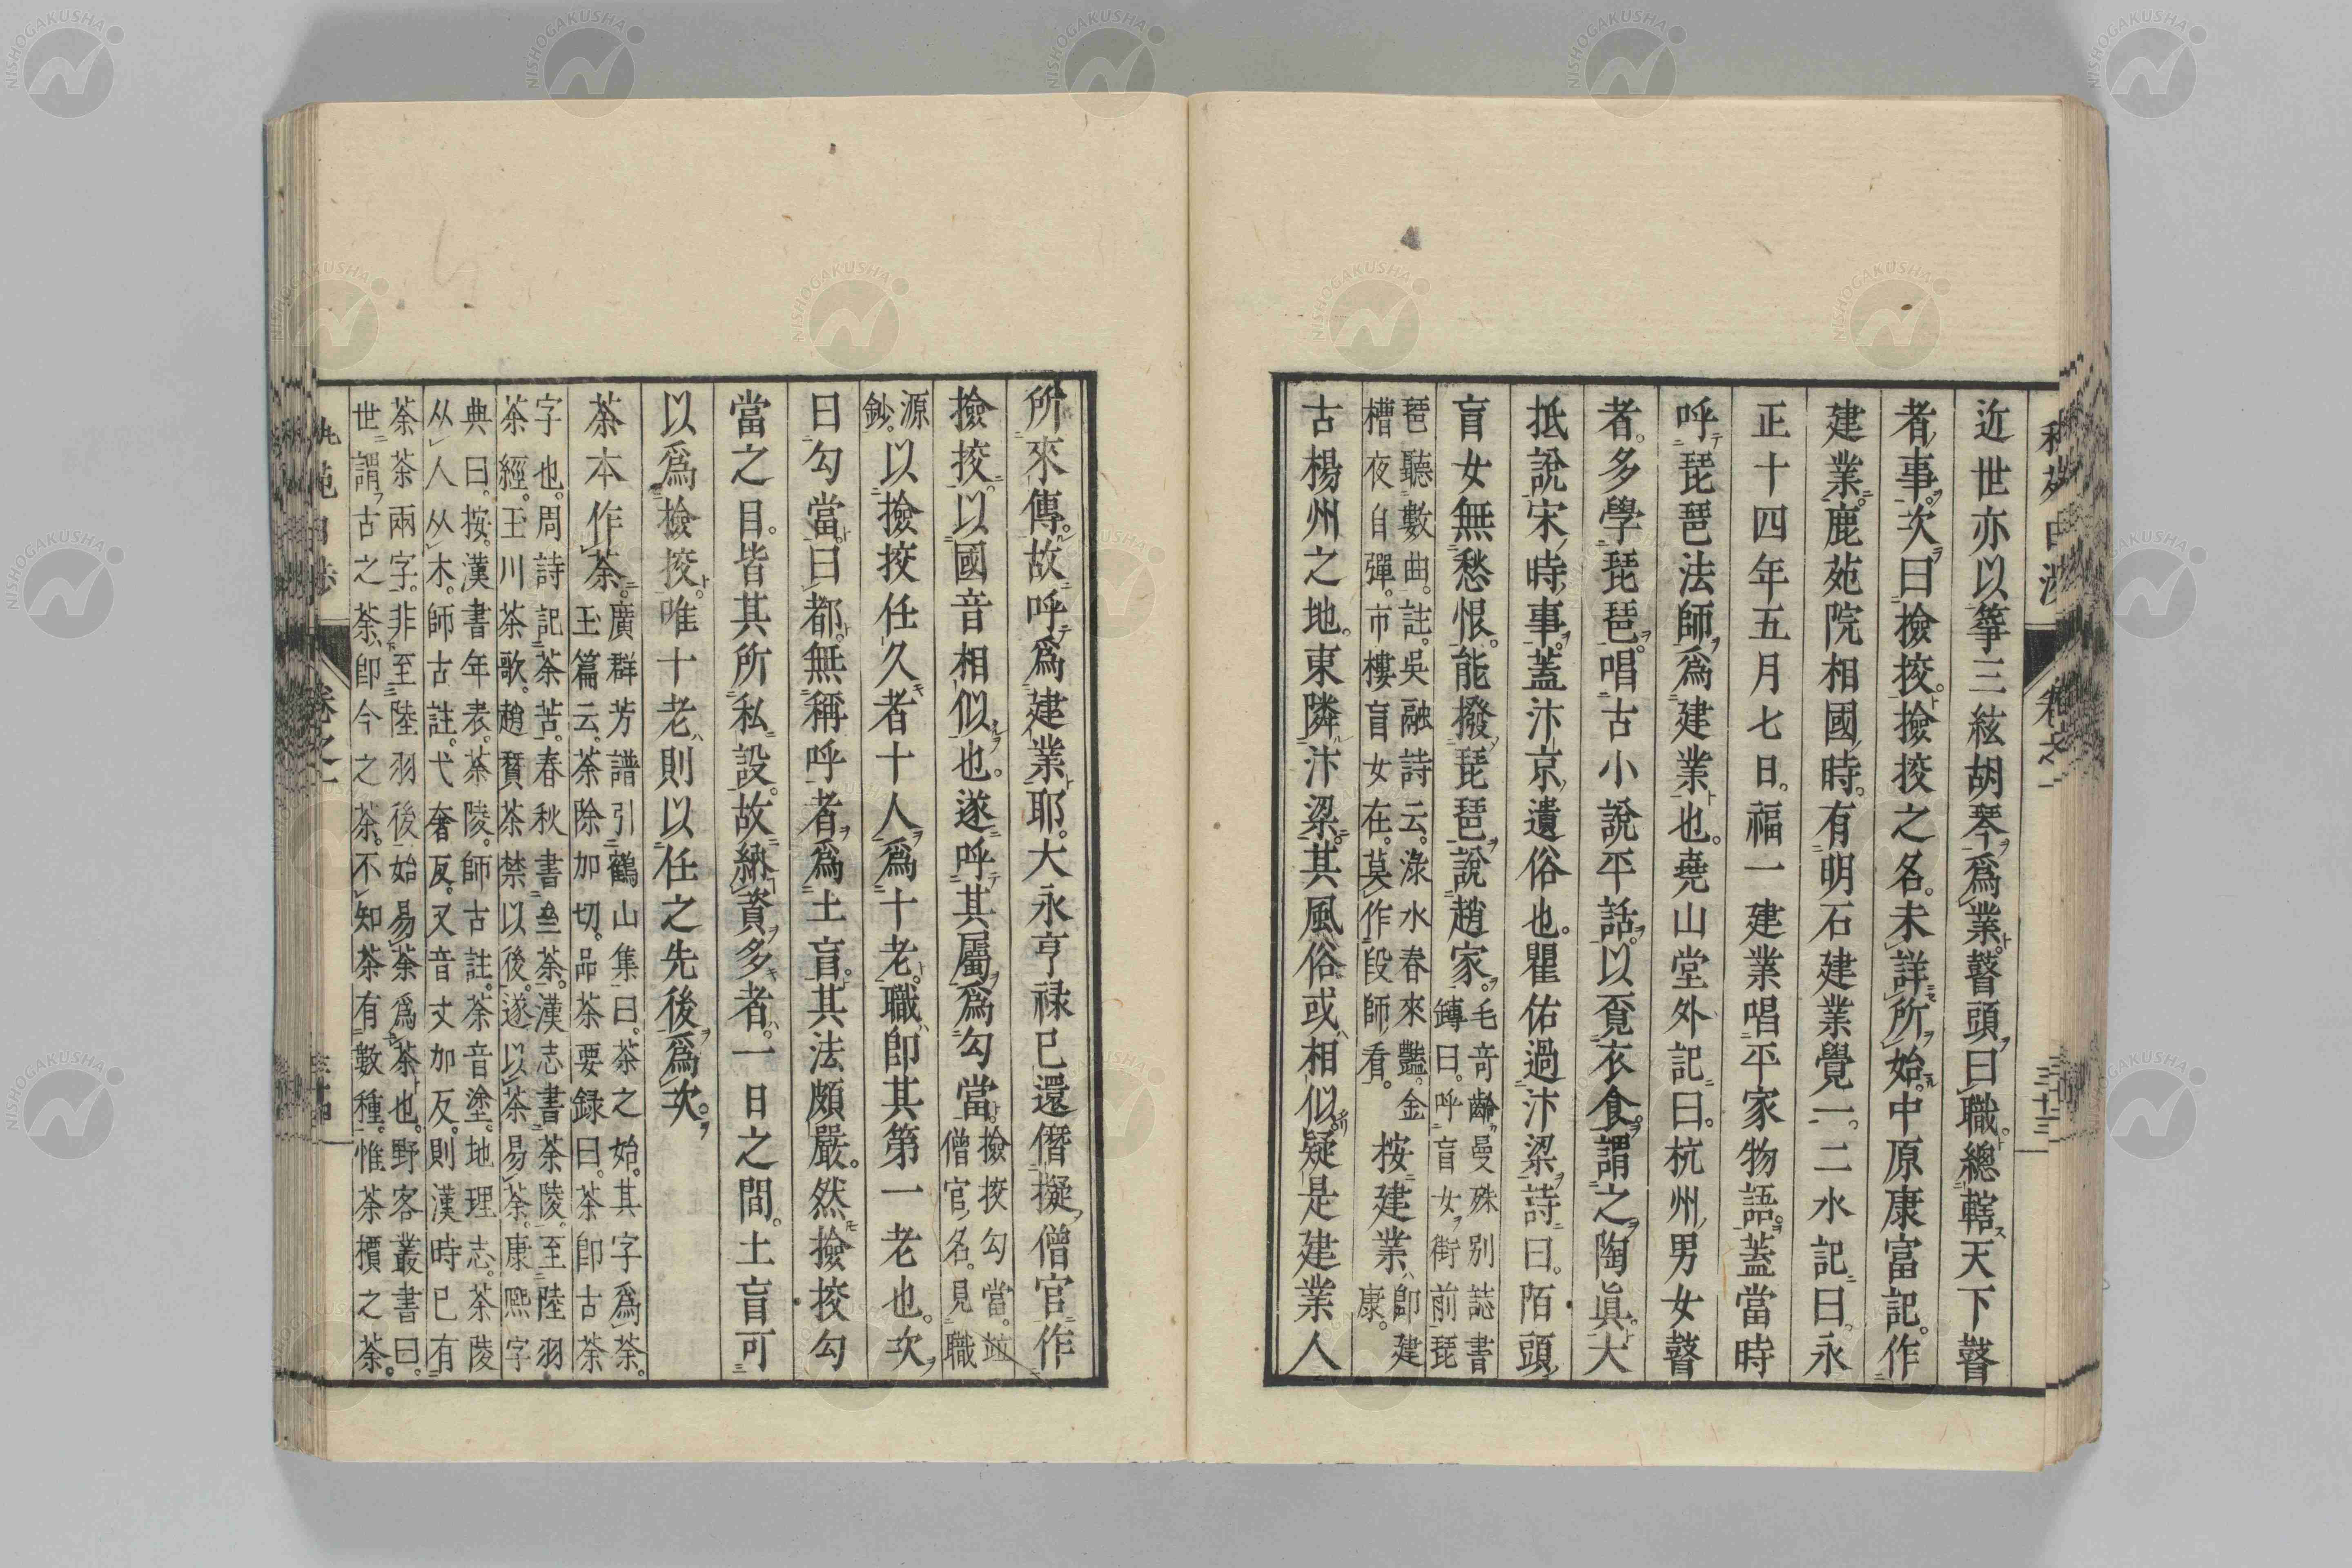 近世亦以箏三絃胡琴爲業瞽頭曰職總轄天下瞽
者事次曰撿挍撿挍之名未詳所始中原康富記作
建業鹿苑院相國時有明石建業覺一二水記曰永
正十四年五月七日福一建業唱平家物語蓋當時
呼琵琶法師爲建業也堯山堂外記曰杭州男女瞽
者多學琵琶唱古小說平話以覓衣食謂之陶眞大
抵說宋時事蓋汴京遺俗也瞿佑過汴梁詩曰陌頭
盲女無愁恨能撥琵琶說趙家毛奇齡曼殊別誌書
鏄曰呼盲女街前琵
琶聽數曲註吳融詩云淥水春來豔金
槽夜自彈市樓盲女在莫作段師看按建業卽建
康
古楊州之地東隣汴梁其風俗或相似疑是建業人
所來傳故呼爲建業耶大永亨禄已還僭擬僧官作
撿挍以國音相似也遂呼其屬爲勾當撿挍勾當竝
僧官名見職
源
鈔以撿挍任久者十人爲十老職卽其第一老也次
曰勾當曰都無稱呼者爲土盲其法頗嚴然撿挍勾
當之目皆其所私設故納資多者一日之間土盲可
以爲撿挍唯十老則以任之先後爲次
茶本作荼廣群芳譜引鶴山集曰茶之始其字爲荼
玉篇云荼除加切品茶要録曰茶卽古荼
字也周詩記荼苦春秋書壘荼漢志書荼陵至陸羽
茶經玉川茶歌趙贊茶禁以後遂以茶易荼康熙字
典曰按漢書年表荼陵師古註荼音塗地理志茶陵
从人从木師古註弋奢反又音丈加反則漢時已有
荼茶兩字非至陸羽後始易荼爲茶也野客叢書曰
世謂古之荼卽今之茶不知荼有數種惟荼檟之荼
卷之一
三十三